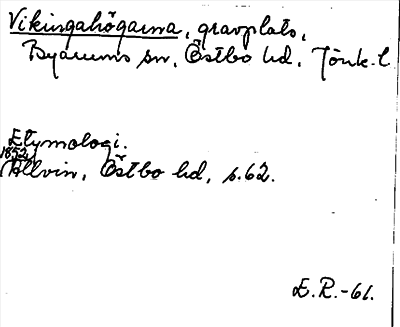 Vikingahögarna, gravplats,
Byarums sn, Östbo hd, Jönk. l.
Etymologi.
1852
Allvin, Östbo hd, s. 62.
E. R. -61.